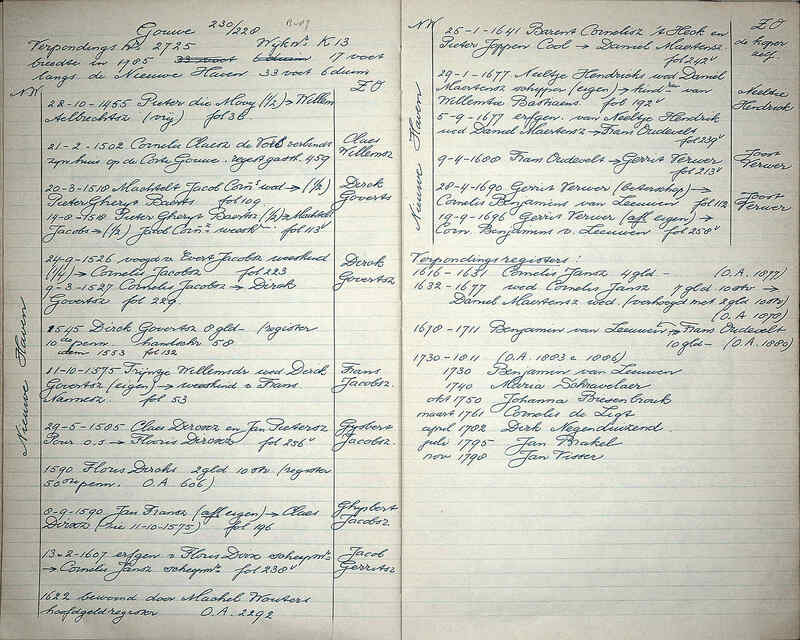 Gouwe 230/228
Verpondings No 2725 Wijk No K 13
breedte in 1985 33 voet 6 duim 17 voet
langs de Nieuwe Haven 33 voet 6 duim
NW ZO
28-10-1465 Pieter die Moey (1/2) → Willem
Aelbrechtsz (vrij) fol 36
21-2-1502 Cornelis Claesz de Vos
zijn huis op de Corte Gouwe. regest gasth. 459
Claes
Willemsz
20-3-1518 Machtelt Jacob Corn. wed → (1/2)
Pieter Gherytz Baerts fol 109
14-8-1518 Pieter Gherytz Baertsz (1/2) → Machtelt
Jacobs → (1/2) Jacob Corn. weesk. fol 113v
Dirck
Goverts
24-9-1526 voogd v Evert Jacobsz weeskind
(1/4) → Cornelis Jacobsz fol 223
9-3-1527 Cornelis Jacobsz → Dirck
Govertsz fol 229
Dirck
Govertsz
1545 Dirck Govertsz 8 gld- (register
10de penn. handschr 58
idem 1553 fol 132
11-10-1575 Trijntge Willemsdr wed Dirck
Govertsz (eigen) → weeskind v Frans
Nannesz. fol 53
Frans
Jacobsz.
29-5-1585 Claes Dircxsz en Jan Pietersz
Pour o.s → Floris Dircxsz fol 256v
Gysbert
Jacobsz.
1590 Floris Dircks 2 gld 10 str. (register
50ste penn. O.A. 606)
8-9-1590 Jan Fransz (afl eigen) → Claes
Dircxz (zie 11-10-1575) fol 196
Ghysbert
Jacobsz
13-2-1607 erfgen v Floris Dircx scheepm.
→ Cornelis Jansz scheepm. fol 238v
Jacob
Gerritsz
1622 bewoond door Machel Wouters
hoofdgeldregister O.A. 2292
Nieuwe Haven
NW ZO
25-1-1641 Barent Cornelisz 't Hock en
Pieter Joppen Cool → Daniel Maertensz
fol 242v
de koper
zelf.
29-1-1677 Neeltje Hendricks wed Daniel
Maertensz schipper (eigen) → kind van
Willemtie Bastiaens fol 192v
5-9-1677 erfgen. van Neeltje Hendrik
wed Daniel Maertensz → Frans Oudevelt
fol 239v
Neeltie
Hendrick
9-4-1688 Frans Oudevelt → Gerrit Verwer
fol 213v
Joost
Verwer
28-4-1690 Gerrit Verwer (beterschap) →
Cornelis Benjamins van Leeuwen fol 112
19-9-1696 Gerrit Verwer (afl eigen) →
Corn. Benjamins v. Leeuwen fol 258v
Joost
Verwer
Nieuwe Haven
Verpondingsregisters:
1616-1631 Cornelis Jansz 4 gld - (O.A. 1877)
1632-1677 wed Cornelis Jansz 7 gld 10 str →
Daniel Maertensz wed. (verhoogd met 2 gld 10 str)
(O.A. 1878)
1678-1711 Benjamin van Leeuwen → Frans Oudevelt
10 gld- (O.A. 1880)
1730-1811 (O.A. 1883 - 1886)
1730 Benjamin van Leeuwen
1740 Maria Schravelaer
okt 1750 Johanna Boesenhoek
maart 1761 Cornelis de Ligt
april 1782 Dirk Negenduizend
julie 1795 Jan Brakel
nov 1798 Jan Visser